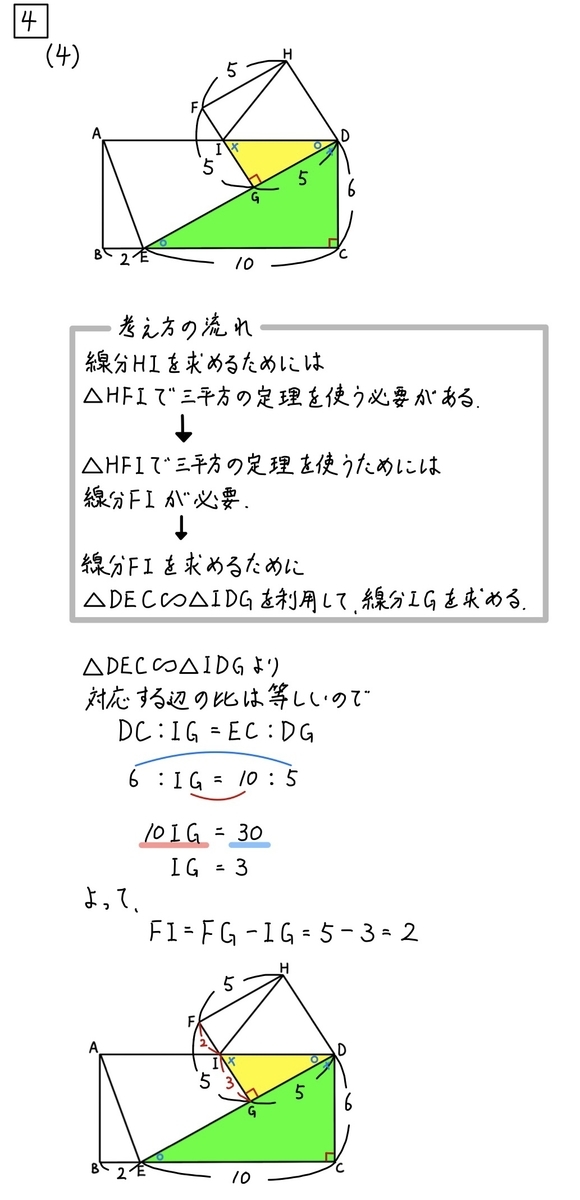 4
(4)
H
5
F
A
I
×
○
D
×
5
5
G
6
○
B
2
E
10
C
考え方の流れ
線分HIを求めるためには
△HFIで三平方の定理を使う必要がある.
↓
△HFIで三平方の定理を使うためには
線分FIが必要.
↓
線分FIを求めるために
△DEC∽△IDGを利用して、線分IGを求める.
△DEC∽△IDGより
対応する辺の比は等しいので
DC:IG=EC:DG
6:IG=10:5
10IG=30
IG=3
よって、
FI=FG-IG=5-3=2
H
5
F
2
A
I
×
○
D
×
5
3
5
G
6
○
B
2
E
10
C